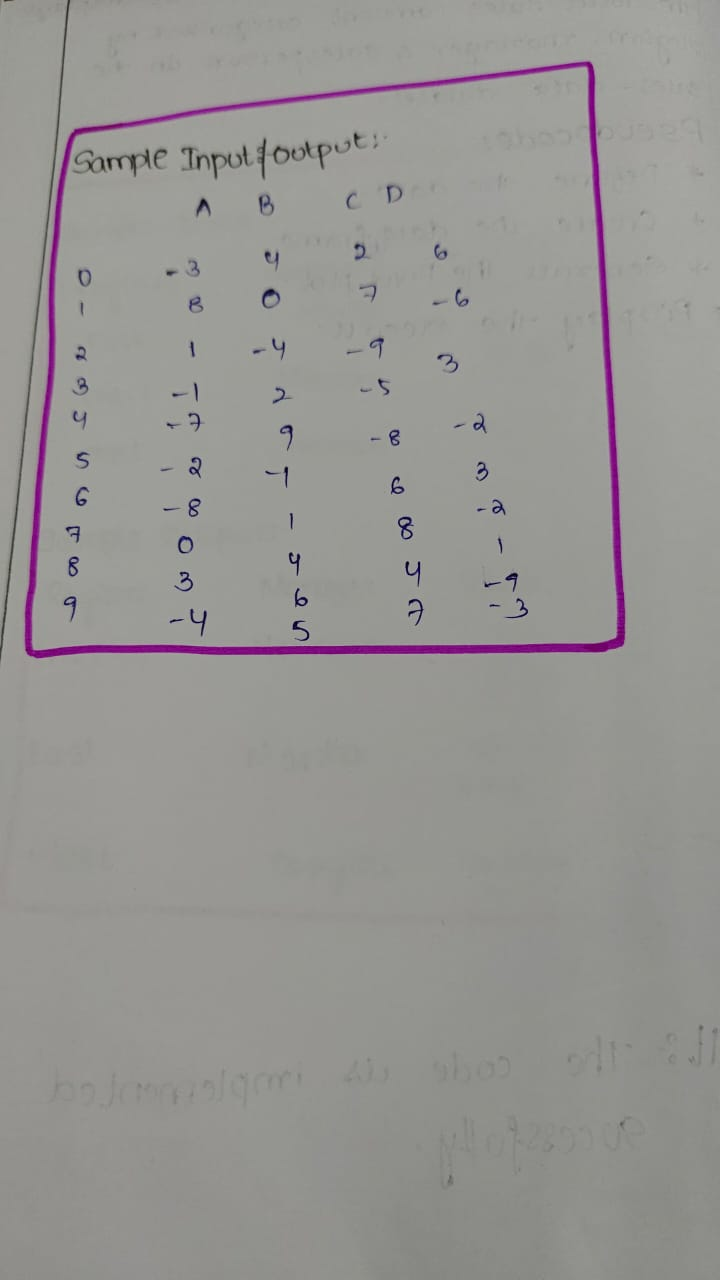 Sample Input & output:-
A B C D
0 -3 4 2 6
1 8 0 7 -6
2 1 -4 -9 3
3 -1 2 -5
4 -7 9 -8 -2
5 -2 -1 6 3
6 -8 1 8 -2
7 0 4 1
8 3 6 4 -9
9 -4 5 7 -3